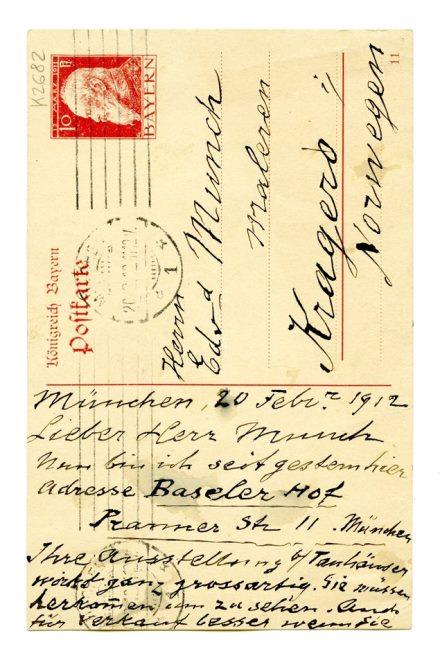 K2682
10 Pf
BAYERN
11
Königreich Bayern
Postkarte
Herrn
Edvd Munch
Maleren
Kragerö
Norwegen
München, 20 Febr. 1912
Lieber Herr Munch
Nun bin ich seit gestern hier
Adresse Baseler Hof
Pranner Str 11. München
Ihre Ausstellung b/ Tanhäuser
wirkt ganz grossartig. Sie müssen
herkomen um zu sehen. Auch
für Verkauf besser wenn Sie